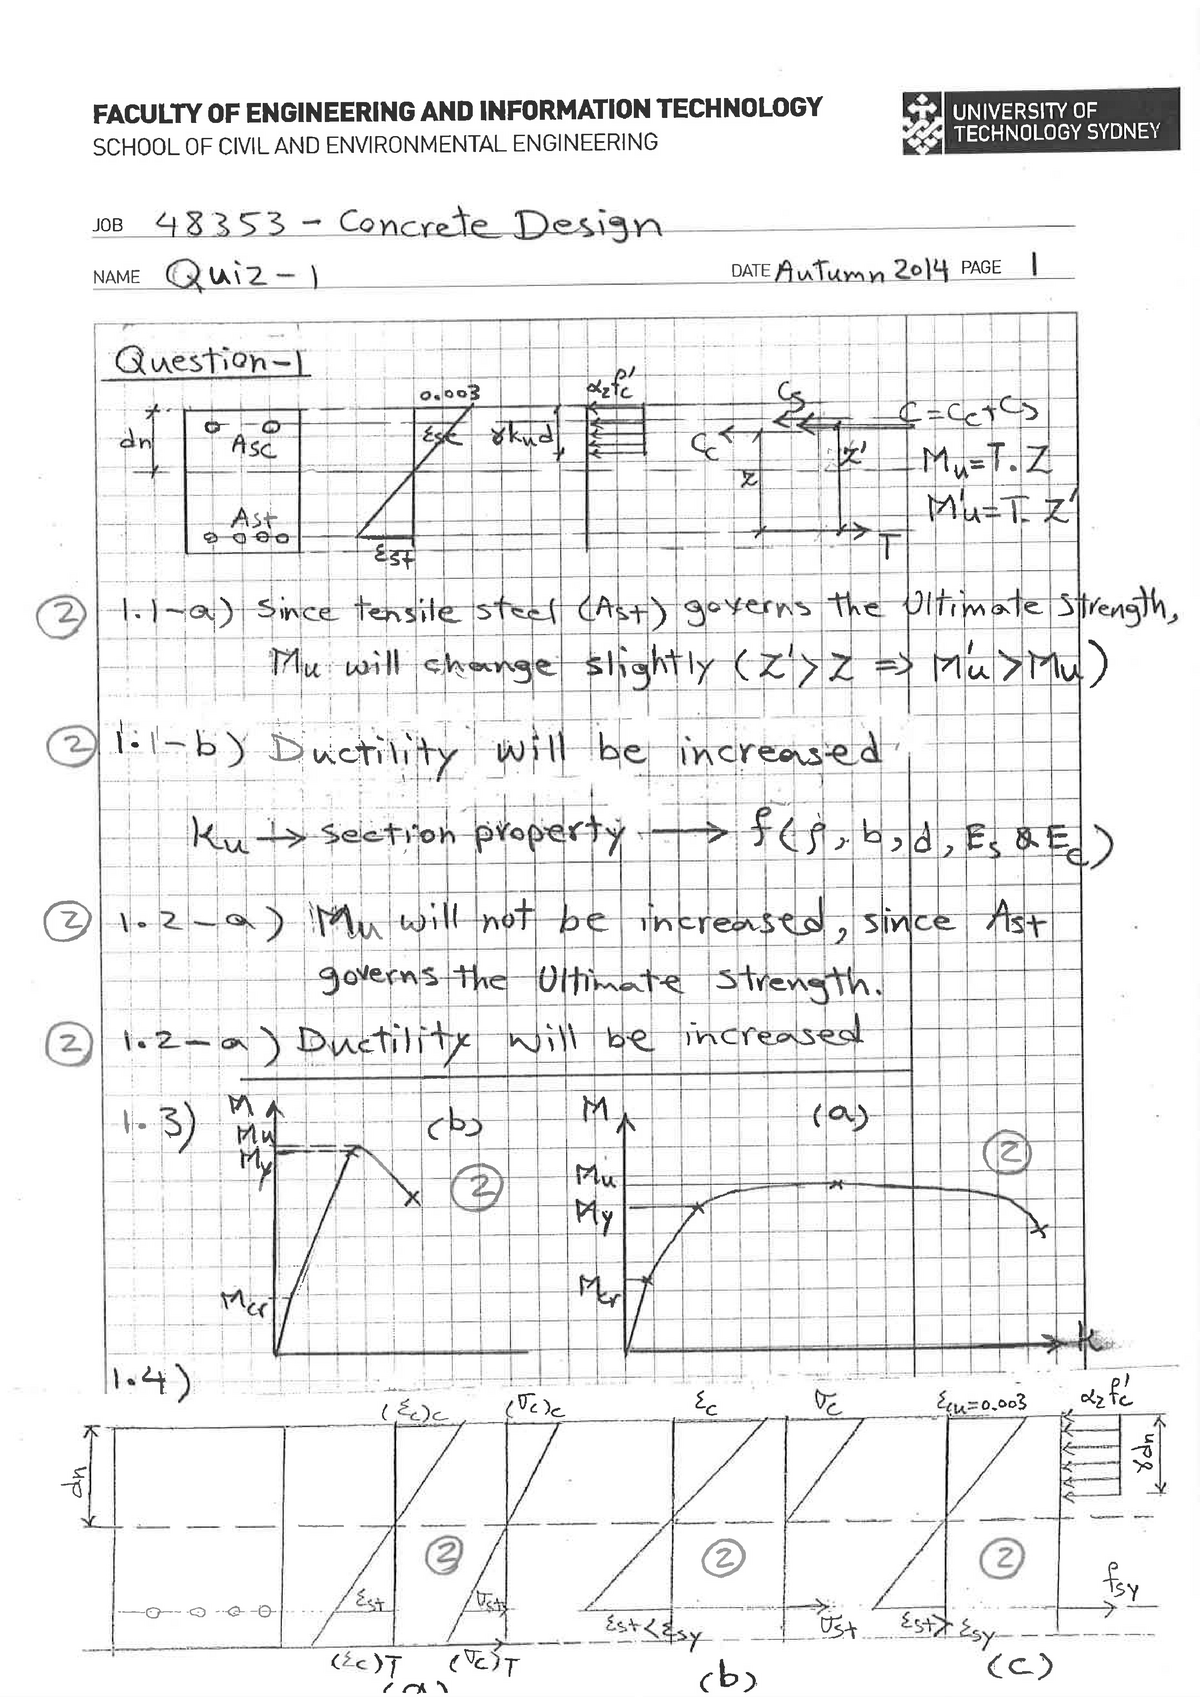 FACULTY OF ENGINEERING AND INFORMATION TECHNOLOGY
SCHOOL OF CIVIL AND ENVIRONMENTAL ENGINEERING
UNIVERSITY OF
TECHNOLOGY SYDNEY
JOB 48353 - Concrete Design
NAME Quiz-1
DATE Autumn 2014 PAGE 1
Question-1
dn
Asc
Ast
0.003
εsc
εst
γkud
α2f'c
Cs
Cc
z
z'
T
C=Cc+Cs
Mu=T.Z
M'u=T.Z'
2 1.1-a) Since tensile steel (Ast) governs the Ultimate Strength,
Mu will change slightly (Z'>Z => M'u>Mu)
2 1.1-b) Ductility will be increased
Ku → section property → f(ρ, b, d, Es & Ec)
2 1.2-a) Mu will not be increased, since Ast
governs the Ultimate strength.
2 1.2-a) Ductility will be increased
1.3)
M
Mu
My
Mcr
(b)
2
M
Mu
My
Mcr
(a)
2
K
1.4)
dn
(εc)c
(σc)c
εc
σc
εcu=0.003
α2f'c
γdn
2
2
2
εst
σst
εst<εsy
σst
εst>εsy
fsy
(εc)T
(σc)T
(a)
(b)
(c)